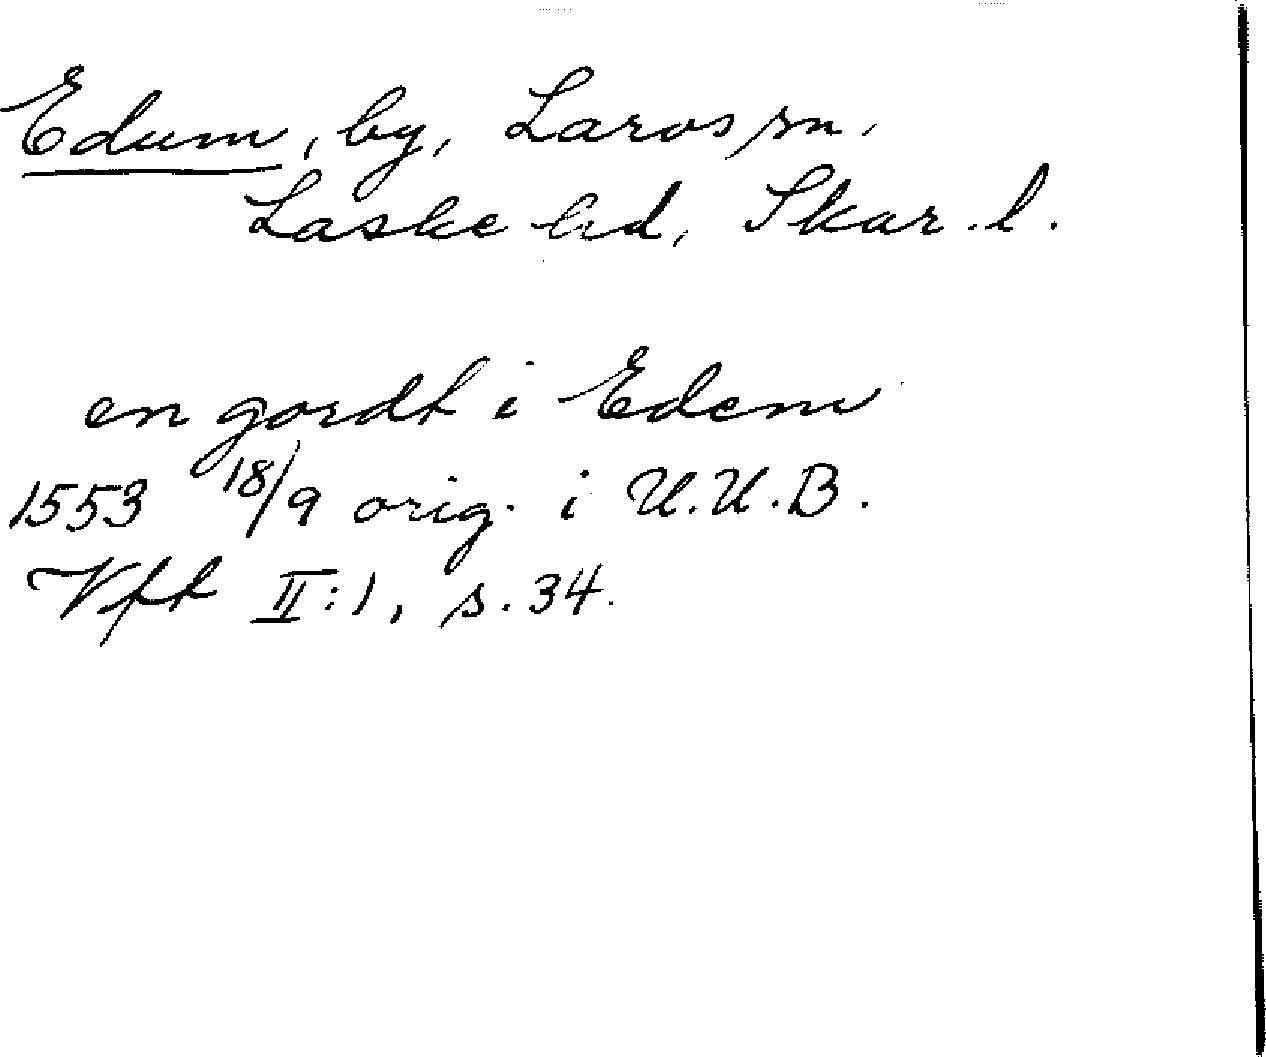 Edum, by, Laros sn,
Laske hd, Skar. l.
en gordt i Edem
1553 18/9 orig. i U.U.B.
Vfft II:1, s. 34.